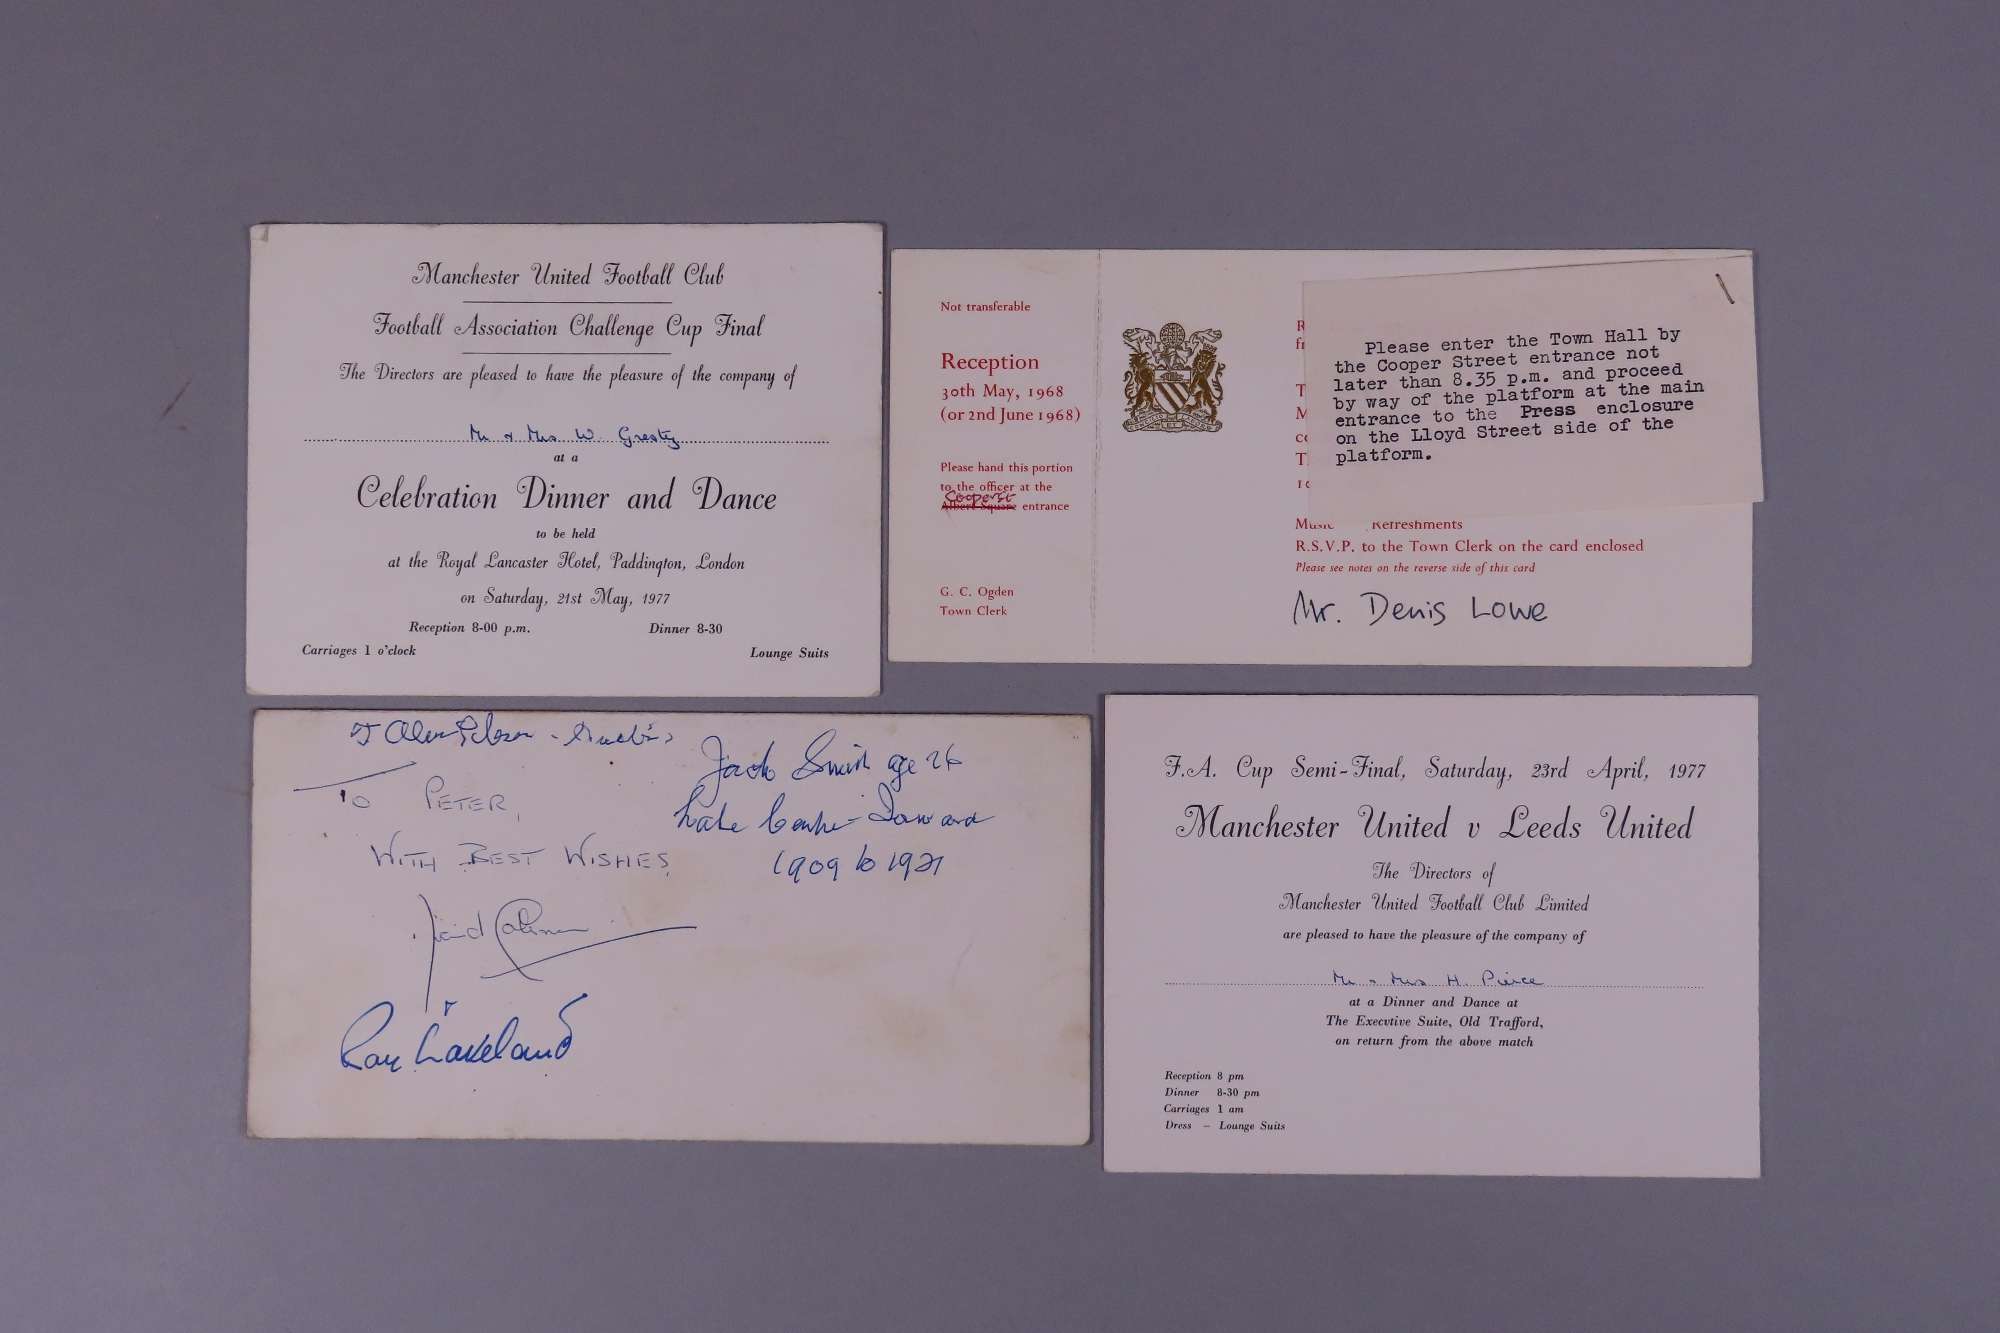 Manchester United Football Club
Football Association Challenge Cup Final
The Directors are pleased to have the pleasure of the company of
Mr & Mrs W. Gresty
at a
Celebration Dinner and Dance
to be held
at the Royal Lancaster Hotel, Paddington, London
on Saturday, 21st May, 1977
Reception 8-00 p.m. Dinner 8-30
Carriages 1 o'clock Lounge Suits
Not transferable
Reception
30th May, 1968
(or 2nd June 1968)
Please hand this portion
to the officer at the
Cooper St
Albert Square entrance
G. C. Ogden
Town Clerk
Please enter the Town Hall by
the Cooper Street entrance not
later than 8.35 p.m. and proceed
by way of the platform at the main
entrance to the Press enclosure
on the Lloyd Street side of the
platform.
Music Refreshments
R.S.V.P. to the Town Clerk on the card enclosed
Please see notes on the reverse side of this card
Mr. Denis Lowe
To PETER,
WITH BEST WISHES
David Coleman
Ray Lakeland
Jack Smith age 26
late Centre-Forward
1909 to 1921
F.A. Cup Semi-Final, Saturday, 23rd April, 1977
Manchester United v Leeds United
The Directors of
Manchester United Football Club Limited
are pleased to have the pleasure of the company of
Mr & Mrs H. Pierce
at a Dinner and Dance at
The Executive Suite, Old Trafford,
on return from the above match
Reception 8 pm
Dinner 8-30 pm
Carriages 1 am
Dress – Lounge Suits